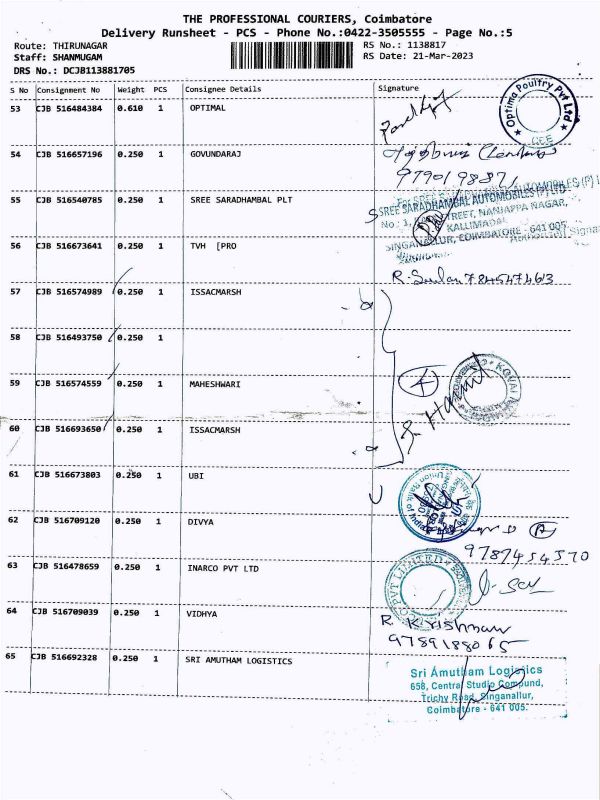 THE PROFESSIONAL COURIERS, Coimbatore
Delivery Runsheet - PCS - Phone No.:0422-3505555 - Page No.:5
Route: THIRUNAGAR
RS No.: 1138817
Staff: SHANMUGAM
RS Date: 21-Mar-2023
DRS No.: DCJB113881705
S No Consignment No Weight PCS Consignee Details Signature
53 CJB 516484384 0.610 1 OPTIMAL
Optima Poultry Pvt Ltd
CBE
54 CJB 516657196 0.250 1 GOVUNDARAJ
55 CJB 516540785 0.250 1 SREE SARADHAMBAL PLT
SREE SARADHAMBAL AUTOMOBILES (P) LTD
STREET, NANJAPPA NAGAR,
KALLIMADAI
SINGANALLUR, COIMBATORE - 641 005.
56 CJB 516673641 0.250 1 TVH [PRO
57 CJB 516574989 0.250 1 ISSACMARSH
58 CJB 516493750 0.250 1
59 CJB 516574559 0.250 1 MAHESHWARI
4
60 CJB 516693650 0.250 1 ISSACMARSH
61 CJB 516673803 0.250 1 UBI
62 CJB 516709120 0.250 1 DIVYA
9787454570
63 CJB 516478659 0.250 1 INARCO PVT LTD
64 CJB 516709039 0.250 1 VIDHYA
R Krishnan
9789188065
65 CJB 516692328 0.250 1 SRI AMUTHAM LOGISTICS
Sri Amutham Logistics
658, Central Studio Compund,
Trichy Road, Singanallur,
Coimbatore - 641 005.